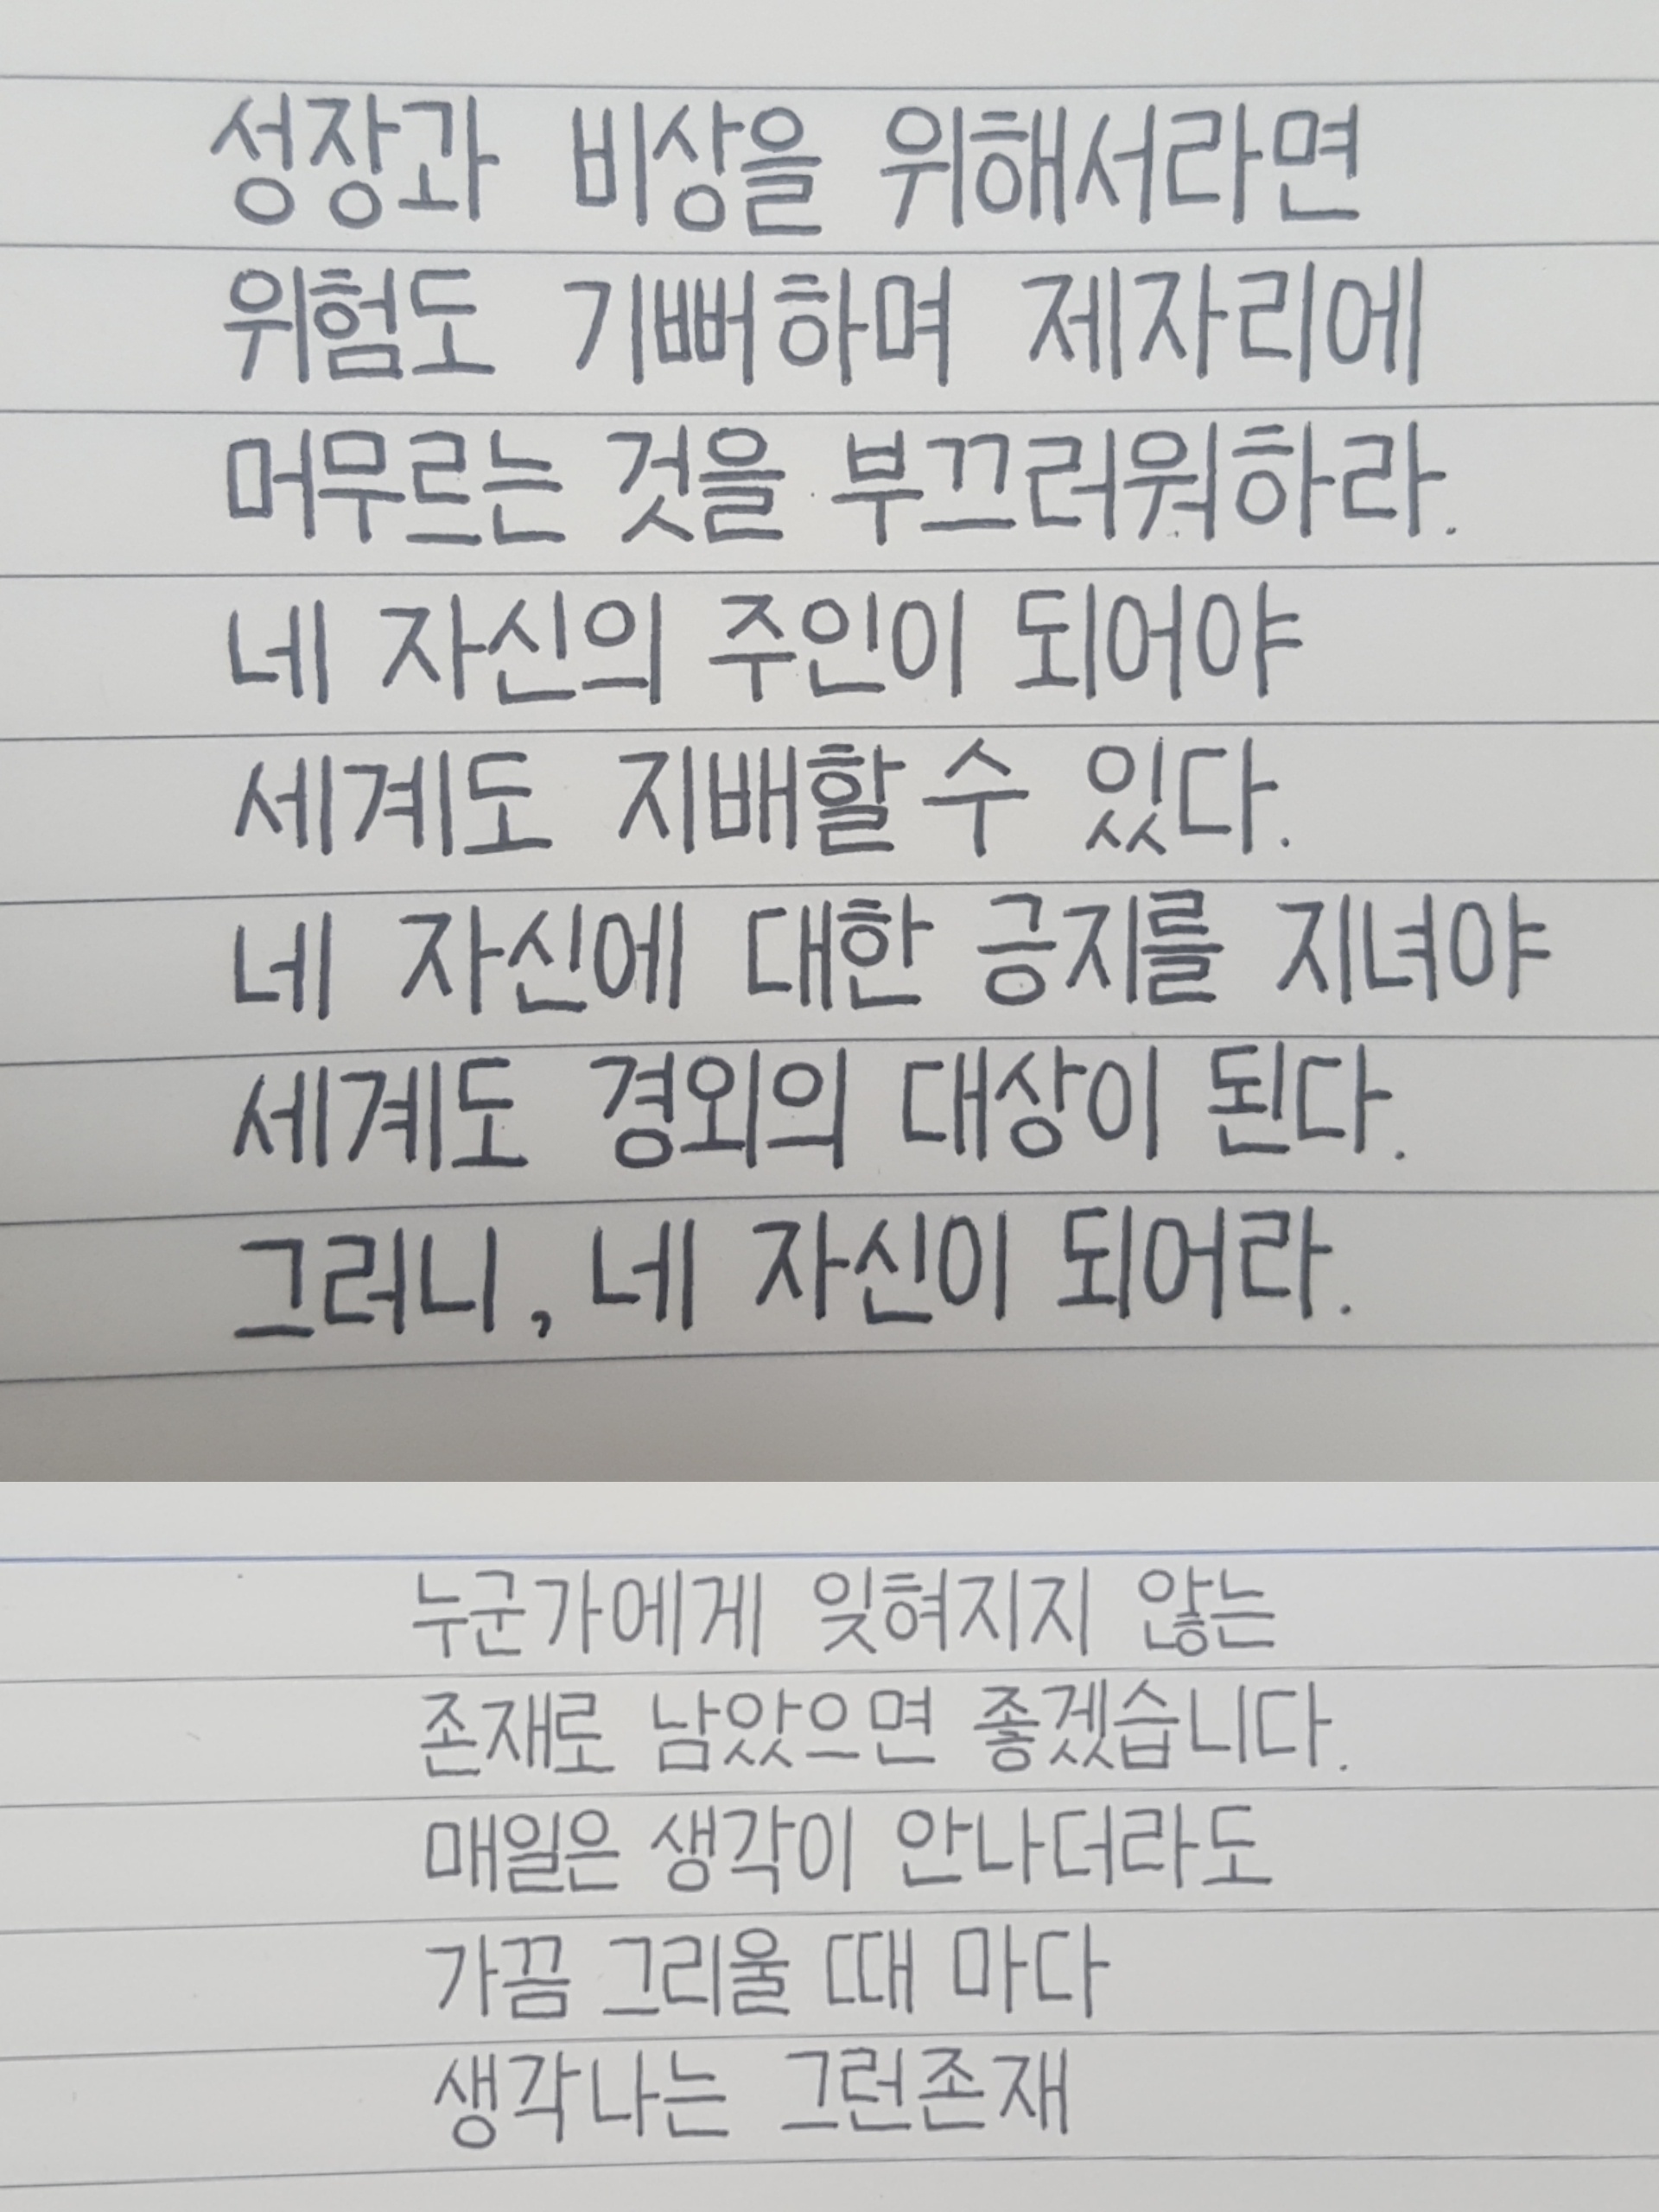 성장과 비상을 위해서라면
위험도 기뻐하며 제자리에
머무르는 것을 부끄러워하라.
네 자신의 주인이 되어야
세계도 지배할 수 있다.
네 자신에 대한 긍지를 지녀야
세계도 경외의 대상이 된다.
그러니, 네 자신이 되어라.
누군가에게 잊혀지지 않는
존재로 남았으면 좋겠습니다.
매일은 생각이 안나더라도
가끔 그리울 때 마다
생각나는 그런존재